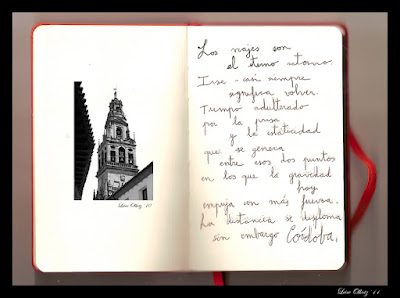 Los viajes son
el eterno retorno.
Irse - casi siempre
significa volver.
Tiempo adulterado
por la prisa
y la estaticidad
que se genera
entre esos dos puntos
en los que la gravedad
hoy
empuja con más fuerza.
La distancia se desploma
sin embargo Córdoba.